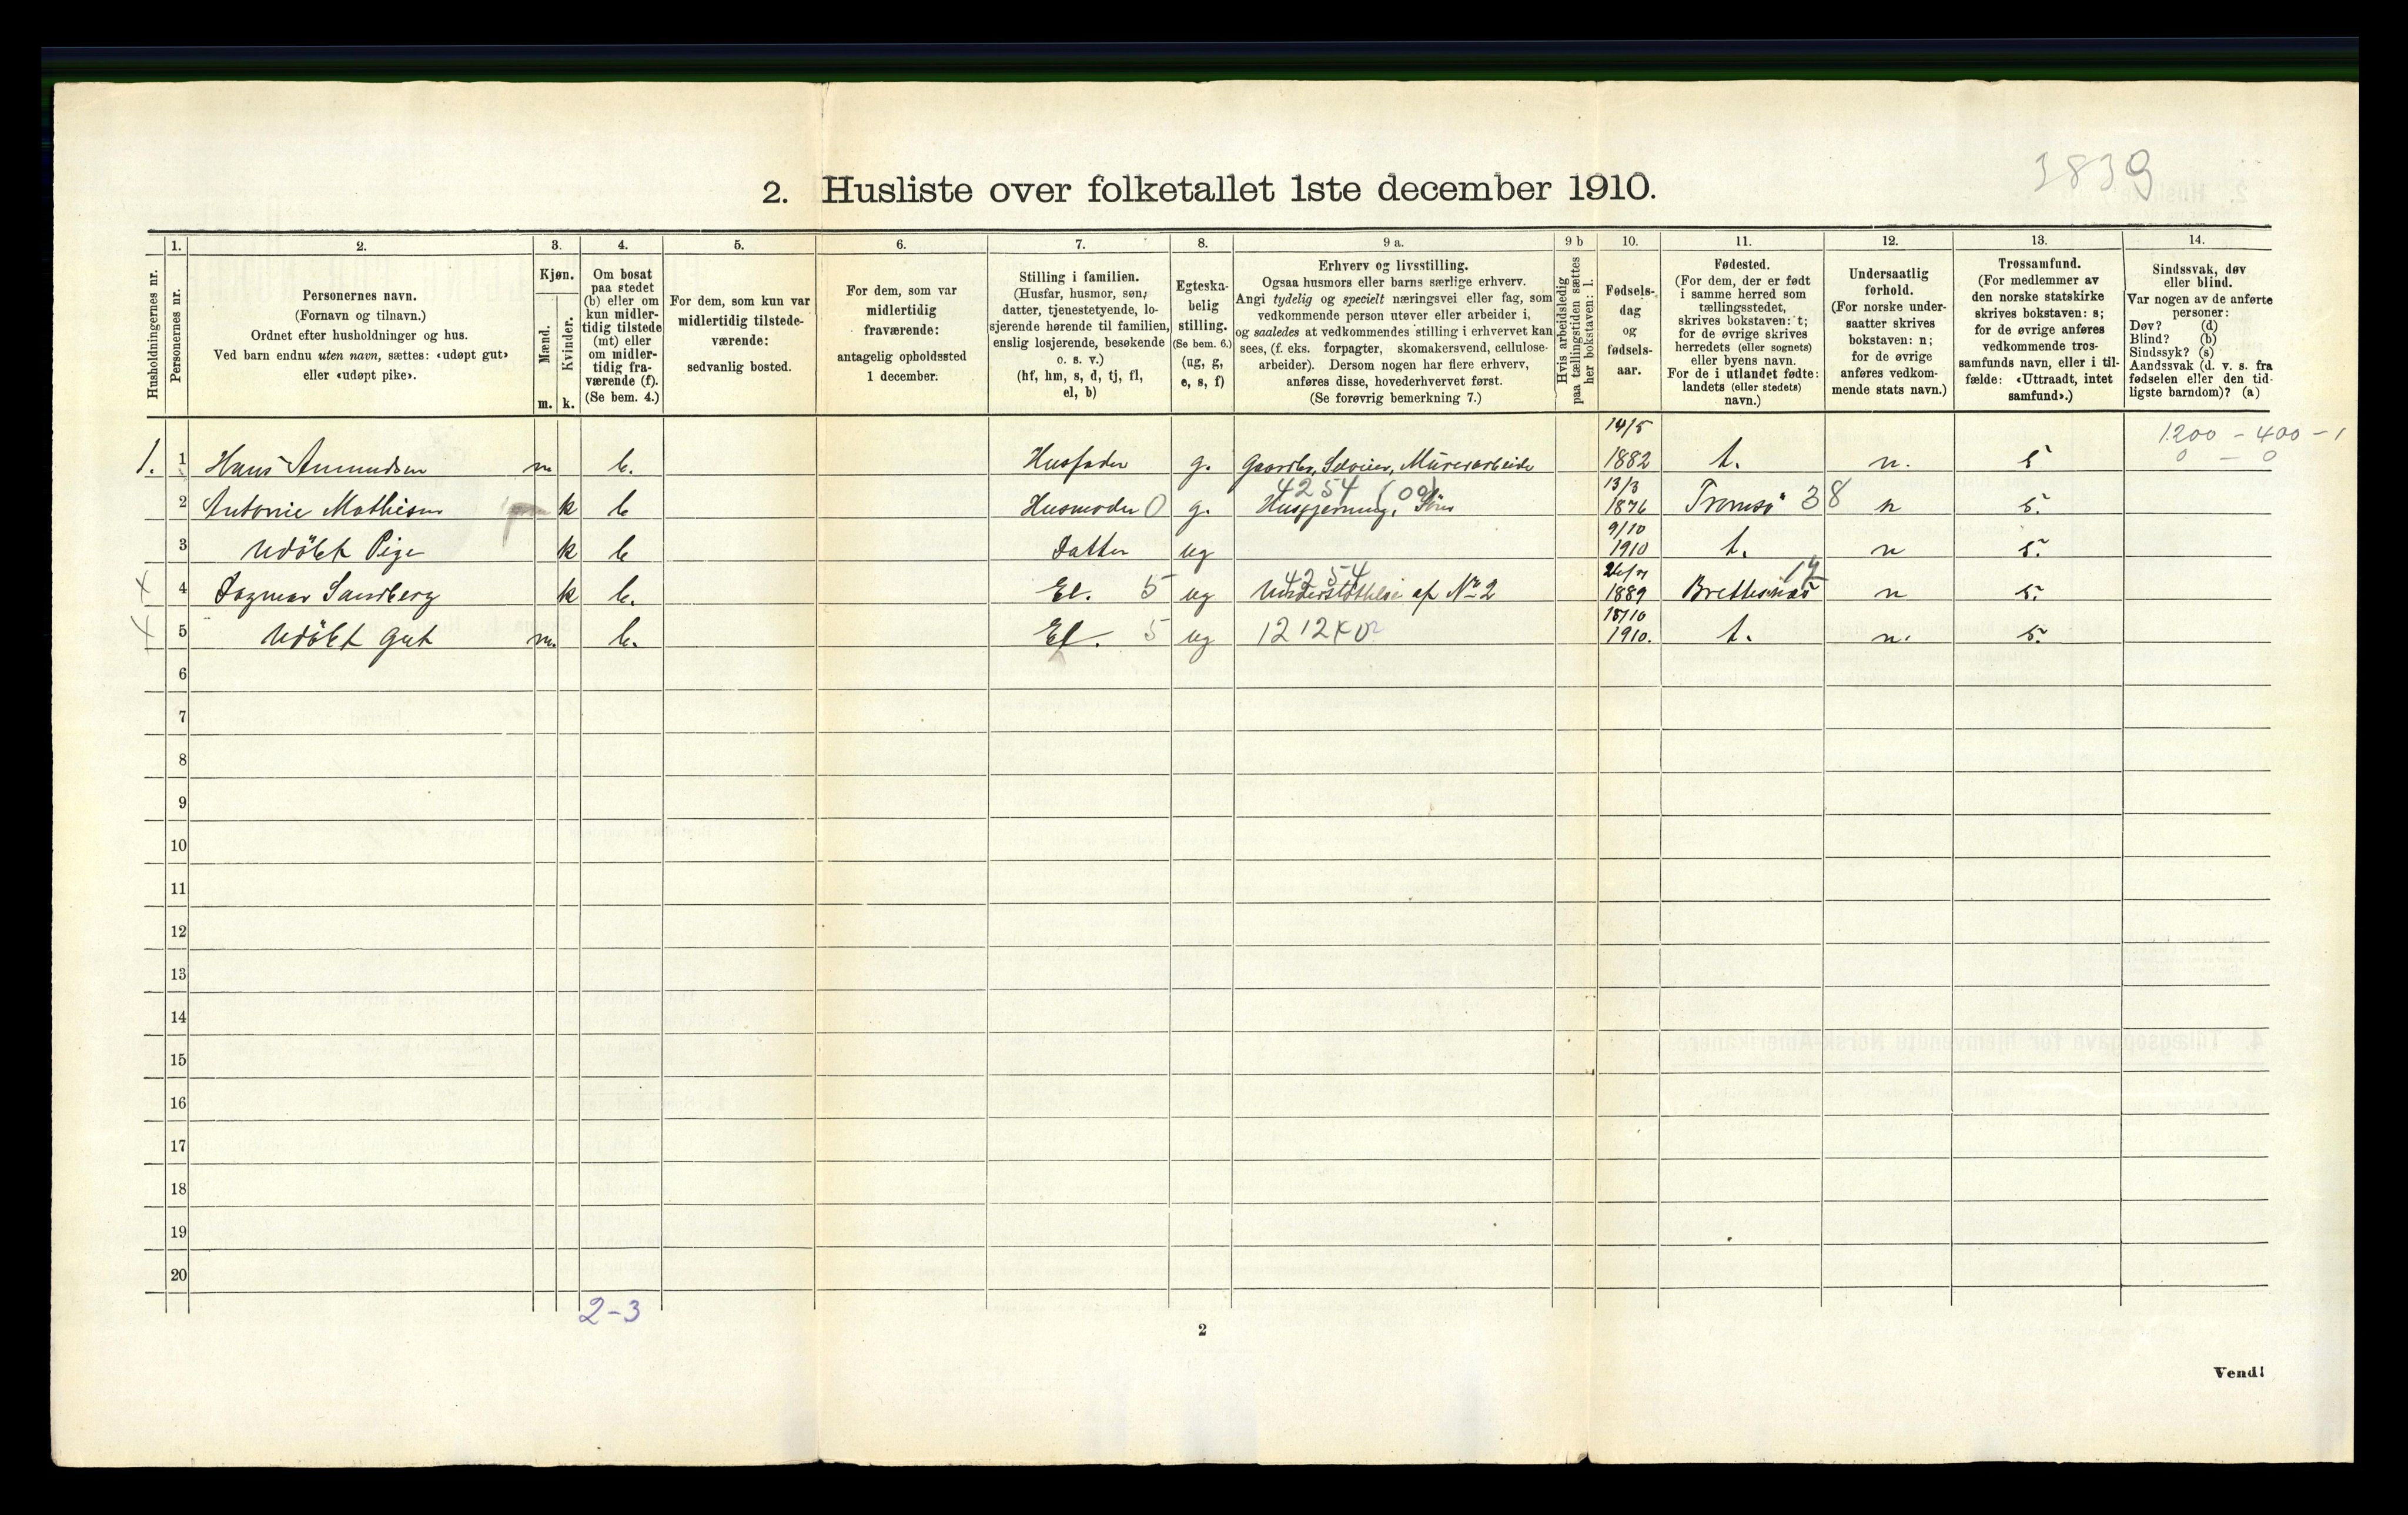 3839
2. Husliste over folketallet 1ste december 1910.
Husholdningernes nr.
1. Personernes nr.
2. Personernes navn.
(Fornavn og tilnavn.)
Ordnet efter husholdninger og hus.
Ved barn endnu uten navn, sættes: «udøpt gut»
eller «udøpt pike».
3. Kjøn.
Mænd. m.
Kvinder. k.
4. Om bosat
paa stedet
(b) eller om
kun midler-
tidig tilstede
(mt) eller
om midler-
tidig fra-
værende (f).
(Se bem. 4.)
5. For dem, som kun var
midlertidig tilstede-
værende:
sedvanlig bosted.
6. For dem, som var
midlertidig
fraværende:
antagelig opholdssted
1 december.
7. Stilling i familien.
(Husfar, husmor, søn,
datter, tjenestetyende, lo-
sjerende hørende til familien,
enslig losjerende, besøkende
o. s. v.)
(hf, hm, s, d, tj, fl,
el, b)
8. Egteska-
belig
stilling.
(Se bem. 6.)
(ug, g,
e, s, f)
9 a. Erhverv og livsstilling.
Ogsaa husmors eller barns særlige erhverv.
Angi tydelig og specielt næringsvei eller fag, som
vedkommende person utøver eller arbeider i,
og saaledes at vedkommendes stilling i erhvervet kan
sees, (f. eks. forpagter, skomakersvend, cellulose-
arbeider). Dersom nogen har flere erhverv,
anføres disse, hovederhvervet først.
(Se forøvrig bemerkning 7.)
9 b Hvis arbeidsledig
paa tællingstiden sættes
her bokstaven: l.
10. Fødsels-
dag
og
fødsels-
aar.
11. Fødested.
(For dem, der er født
i samme herred som
tællingsstedet,
skrives bokstaven: t;
for de øvrige skrives
herredets (eller sognets)
eller byens navn.
For de i utlandet fødte:
landets (eller stedets)
navn.)
12. Undersaatlig
forhold.
(For norske under-
saatter skrives
bokstaven: n;
for de øvrige
anføres vedkom-
mende stats navn.)
13. Trossamfund.
(For medlemmer av
den norske statskirke
skrives bokstaven: s;
for de øvrige anføres
vedkommende tros-
samfunds navn, eller i til-
fælde: «Uttraadt, intet
samfund».)
14. Sindssvak, døv
eller blind.
Var nogen av de anførte
personer:
Døv? (d)
Blind? (b)
Sindssyk? (s)
Aandssvak (d. v. s. fra
fødselen eller den tid-
ligste barndom)? (a)
1200 - 400 - 1
0 - 0
1. 1 Hans Amundsen m b. Husfader g. Gaardbr, Selveier, Murerarbeide 14/5 1882 t. n. s
4254 (00)
2 Antonie Mathisen k b Husmoder 0 g. Husgjerning, 13/3 1876 Tromsö 38 n s.
3 Udöbt Pige k b Datter ug 9/10 1910 t. n s.
4254 14
x 4 Dagmar Sandberg k b. El. 5 ug Understöttelse af No 2 1889 Brettesnæs n s.
x 5 Udöbt Gut m. b. El. 5 ug 1212 18/10 1910. t. n. s.
6
7
8
9
10
11
12
13
14
15
16
17
18
19
20
2-3
2
Vend!